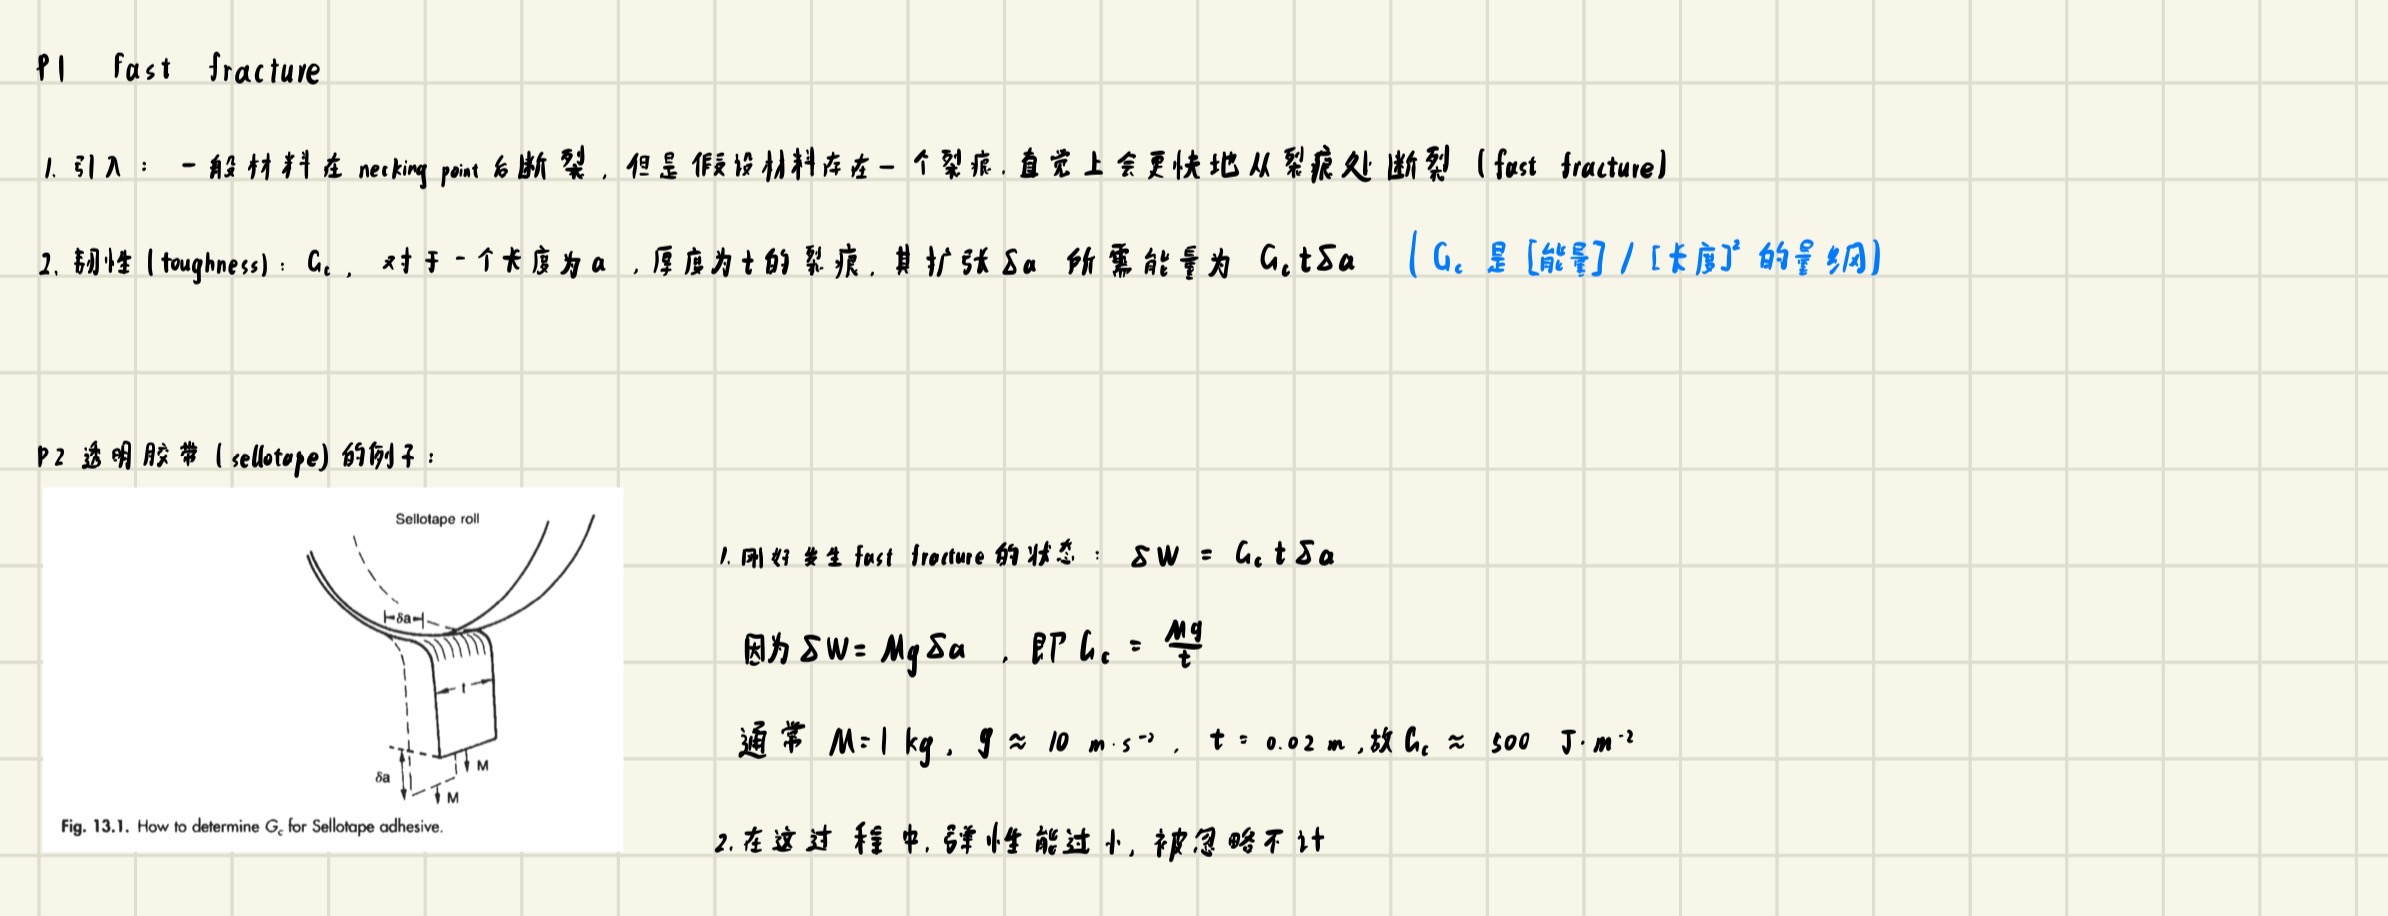 P1 fast fracture
1. 引入：一般材料在 necking point 后断裂，但是假设材料存在一个裂痕，直觉上会更快地从裂痕处断裂 (fast fracture)
2. 韧性 (toughness)：Gc，对于一个长度为 a，厚度为 t 的裂痕，其扩张 δa 所需能量为 Gc t δa (Gc 是 [能量] / [长度]² 的量纲)
P2 透明胶带 (sellotape) 的例子：
Sellotape roll
δa
t
M
δa
M
Fig. 13.1. How to determine Gc for Sellotape adhesive.
1. 刚好发生 fast fracture 的状态：δW = Gc t δa
因为 δW = Mg δa，即 Gc = Mg/t
通常 M = 1 kg, g ≈ 10 m·s⁻², t = 0.02 m, 故 Gc ≈ 500 J·m⁻²
2. 在这过程中，弹性能过小，被忽略不计